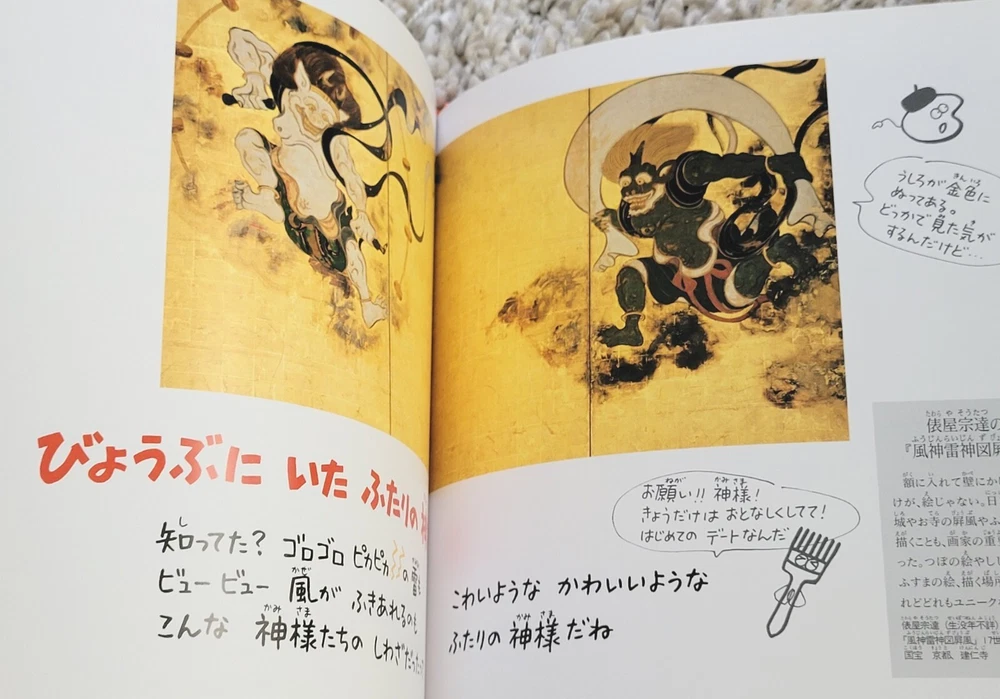 びょうぶに いた ふたりの
し
知ってた? ゴロゴロ ピカピカ
かぜ
ビュー ビュー 風が ふきあれるのも
かみ さま
こんな 神様たちの しわざだった
ねが かみ さま
お願い!! 神様!
きょうだけは おとなしくしてて!
はじめての デートなんだ
こわいような かわいいような
かみ さま
ふたりの 神様だね
きん いろ
うしろが 金色に
ぬってある。
み き
どっかで 見た気が
するんだけど…
たわら や そうたつ
俵屋宗達の
ふうじんらいじん ず
『風神雷神図屏
がく い かべ
額に入れて壁に
けが、絵じゃない。日
しろ てら びょうぶ
城やお寺の屏風やふ
描くことも、画家の重
った。つぼの絵や
ふすまの絵、描く場所
れどどれもユニーク
俵屋宗達(生没年不詳)
『風神雷神図屏風』17世
国宝 京都、建仁寺